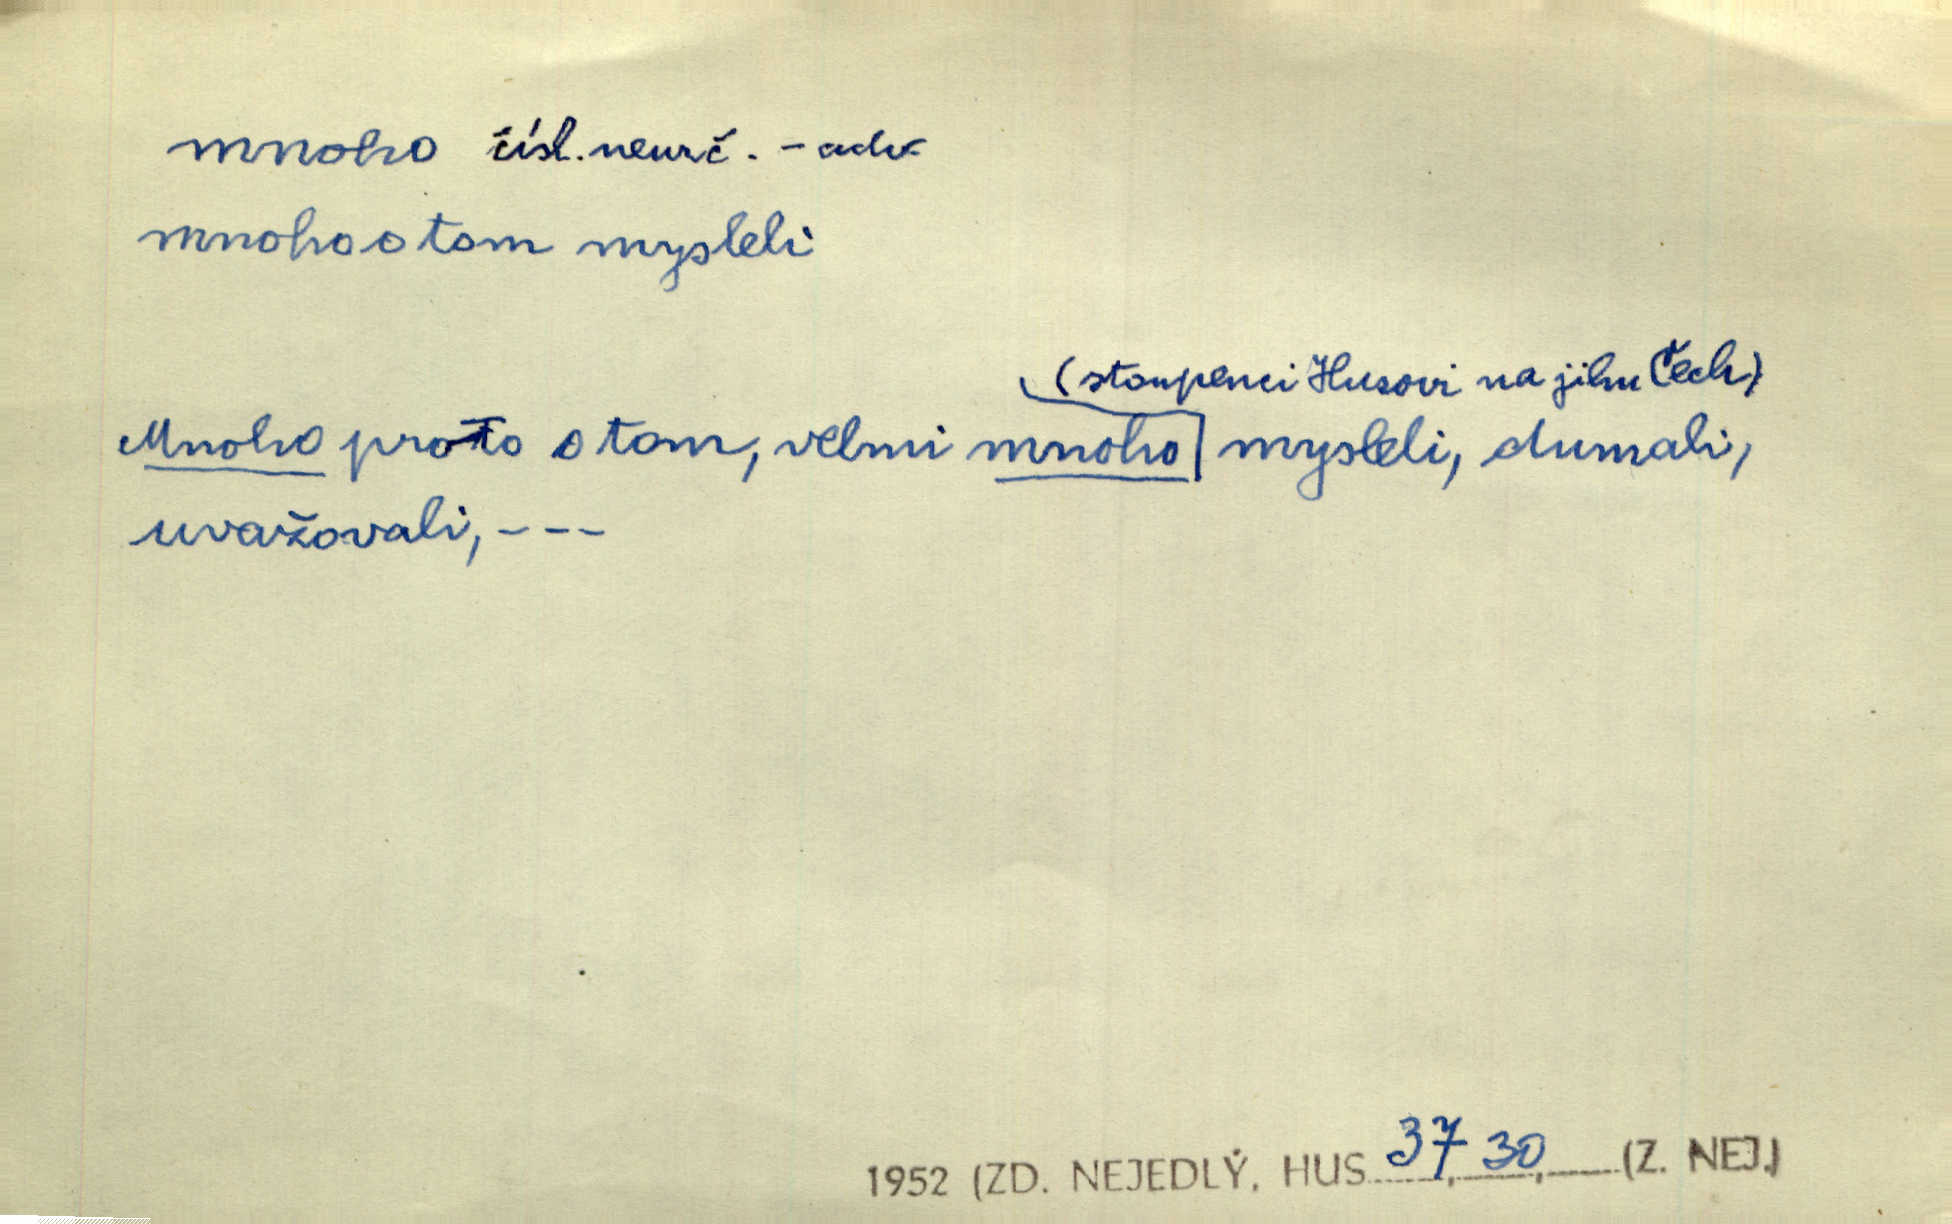 mnoho čísl. neurč. - adv.
mnoho o tom mysleli
(stoupenci Husovi na jihu Čech)
Mnoho proto o tom, velmi mnoho mysleli, dumali,
uvažovali, - - -
1952 (ZD. NEJEDLÝ, HUS 37, 30, (Z. NEJ.)